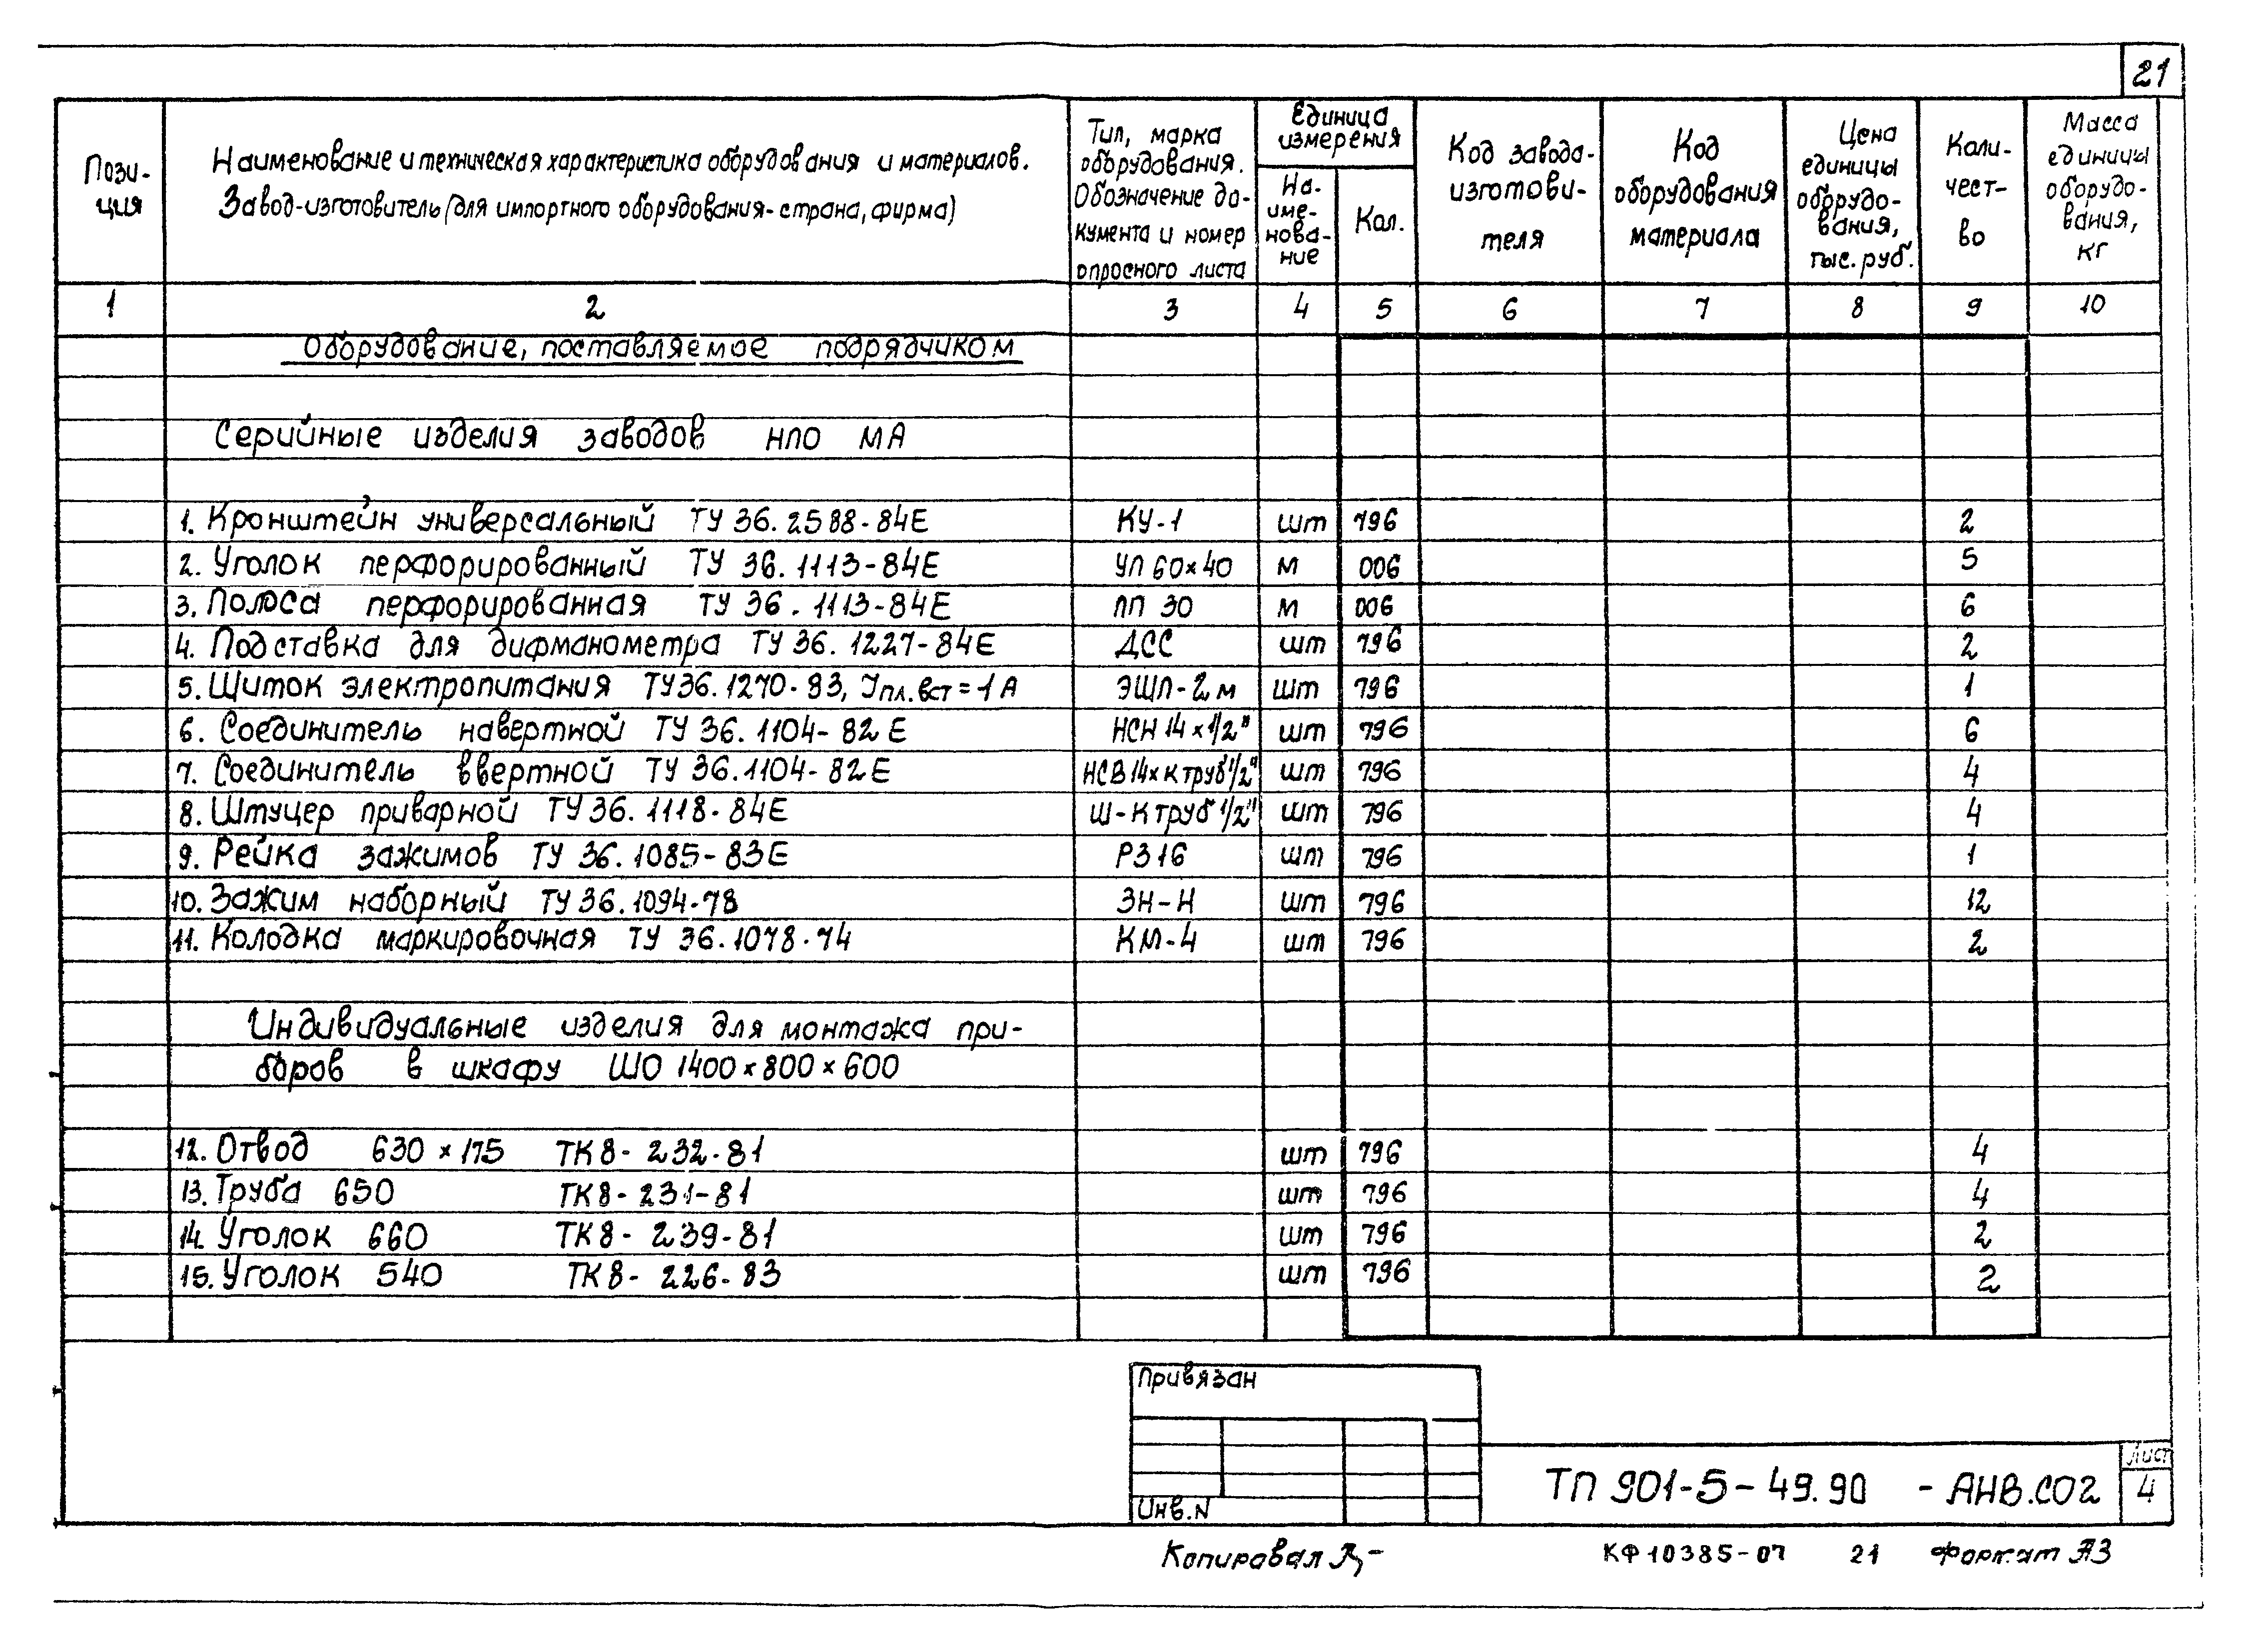 21
Пози-
ция
Наименование и техническая характеристика оборудования и материалов.
Завод-изготовитель (для импортного оборудования- страна, фирма)
Тип, марка
оборудования.
Обозначение до-
кумента и номер
опросного листа
Единица
измерения
На-
име-
нова-
ние
Кол.
Код завода-
изготови-
теля
Код
оборудования
материала
Цена
единицы
оборудо-
вания,
тыс. руб.
Коли-
чест-
во
Масса
единицы
оборудо-
вания,
кг
1 2 3 4 5 6 7 8 9 10
Оборудование, поставляемое подрядчиком
Серийные изделия заводов НПО МА
1. Кронштейн универсальный ТУ 36.2588-84Е КУ-1 шт 796 2
2. Уголок перфорированный ТУ 36.1113-84Е УП 60×40 м 006 5
3. Полоса перфорированная ТУ 36.1113-84Е ПП 30 м 006 6
4. Подставка для дифманометра ТУ 36.1227-84Е ДСС шт 796 2
5. Щиток электропитания ТУ36.1270-83, Jпл.вст=1А ЭЩП-2м шт 796 1
6. Соединитель навертной ТУ 36.1104-82Е НСН 14×1/2" шт 796 6
7. Соединитель ввертной ТУ 36.1104-82Е НСВ14×К труб 1/2" шт 796 4
8. Штуцер приварной ТУ 36.1118-84Е Ш-К труб 1/2" шт 796 4
9. Рейка зажимов ТУ 36.1085-83Е РЗ16 шт 796 1
10. Зажим наборный ТУ 36.1094-78 ЗН-Н шт 796 12
11. Колодка маркировочная ТУ 36.1078-74 КМ-4 шт 796 2
Индивидуальные изделия для монтажа при-
боров в шкафу ШО 1400×800×600
12. Отвод 630×175 ТК8-232-81 шт 796 4
13. Труба 650 ТК8-231-81 шт 796 4
14. Уголок 660 ТК8-239-81 шт 796 2
15. Уголок 540 ТК8-226-83 шт 796 2
Привязан
Инв.N
ТП 901-5-49.90 -АНВ.СО2
Лист
4
Копировал
КФ10385-07 21 Формат А3